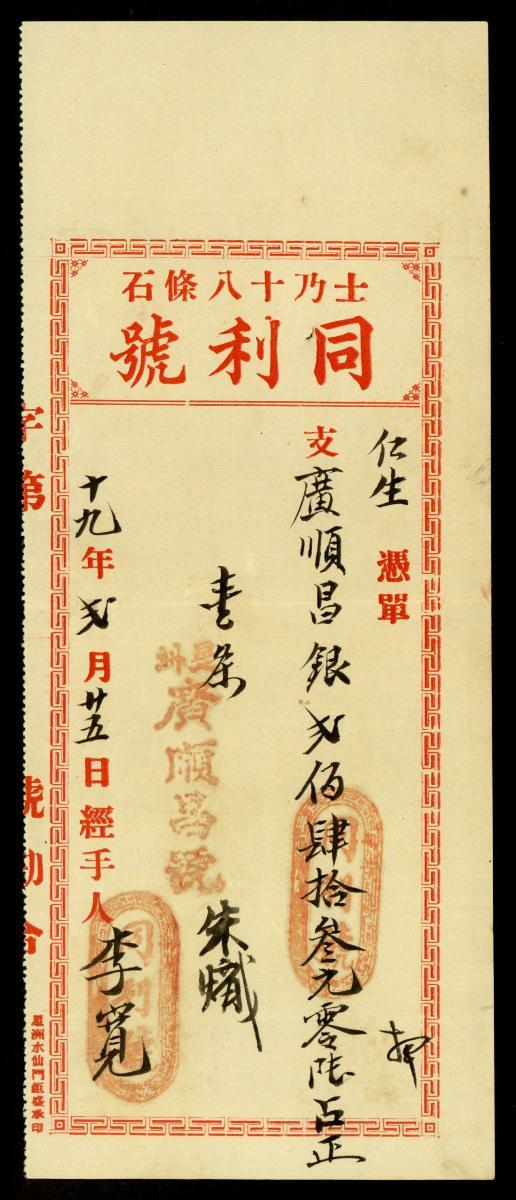 士乃十八條石
同利號
仁生 憑單 押
支 廣順昌銀弍佰肆拾叁元零陸占正
同利號
壹条 朱熾
星洲
廣順昌號
十九年弍月廿五日經手人 李寬
同利號
字第 號勘合
星洲水仙門鉅盛承印